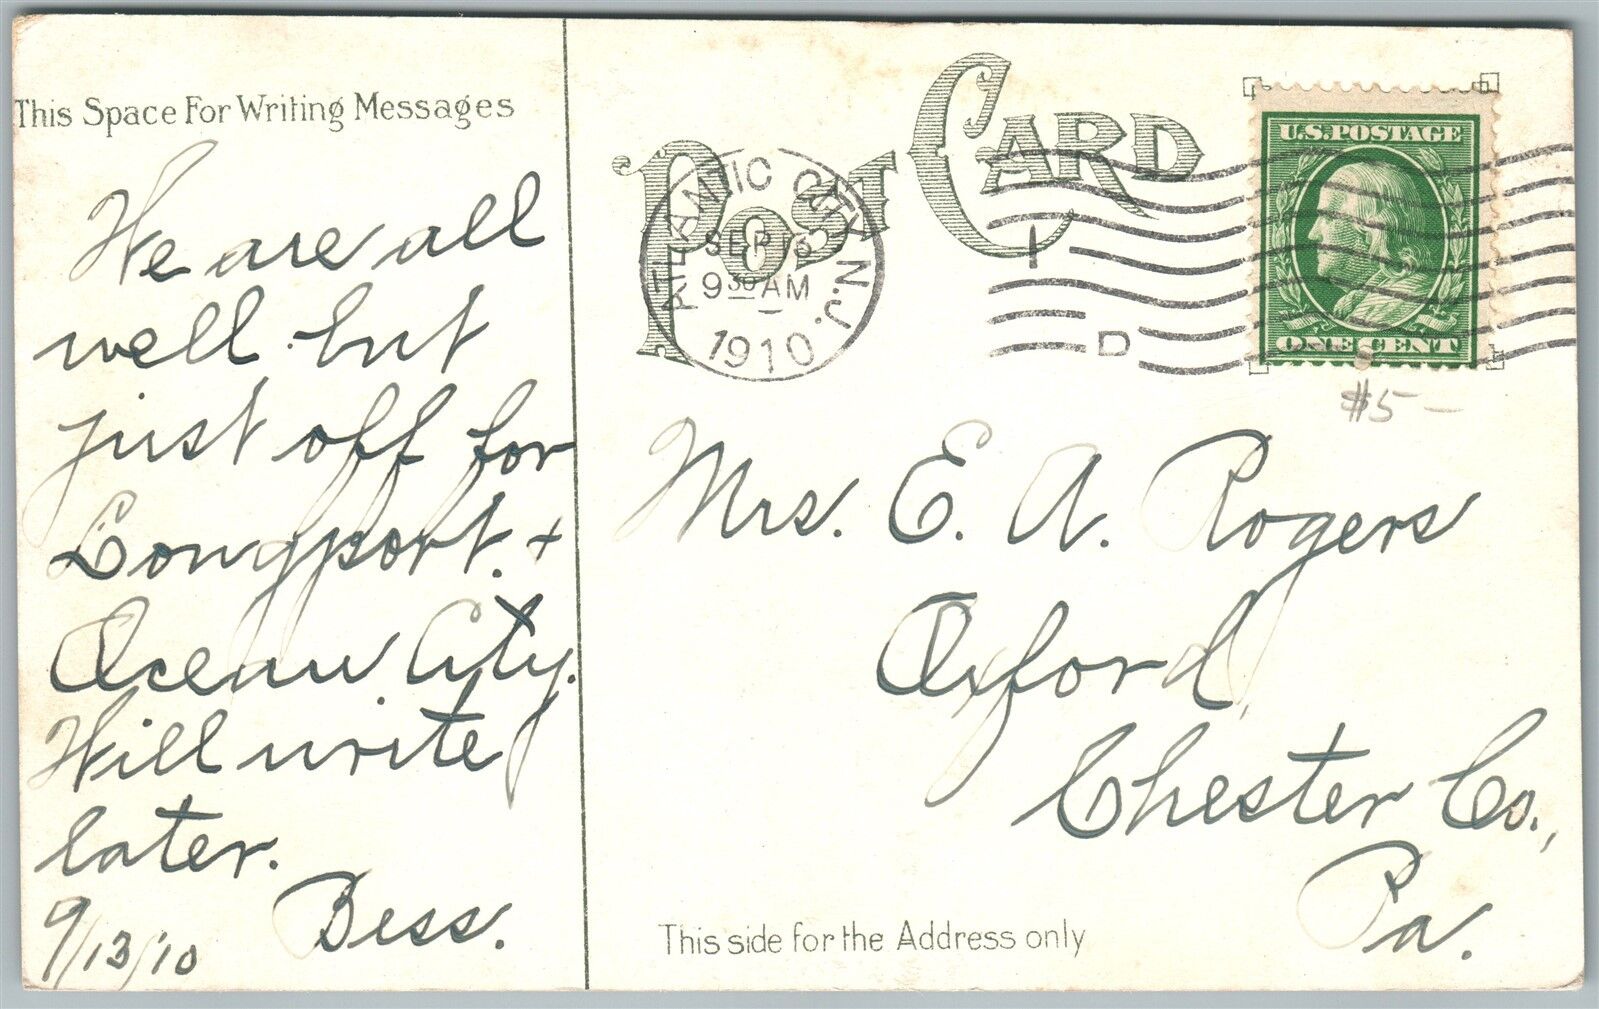 This Space For Writing Messages
We are all
well but
just off for
Longport. +
Ocean City.
Will write
later.
Bess.
9/13/'10
POST CARD
ATLANTIC CITY N.J.
SEP
9 30 AM
1910
1
D
U.S. POSTAGE
ONE CENT
$5-
Mrs. E. A. Rogers
Oxford,
Chester Co.,
Pa.
This side for the Address only